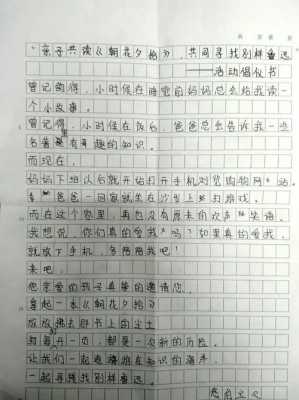 “亲子共读《朝花夕拾》，共同寻找别样鲁迅
——活动倡议书
曾记的得，小时候在睡觉前妈妈总会给我读一
个小故事。
曾记得，小时候在饭后，爸爸总会告诉我一些
名著里有趣的知识。
而现在，
妈妈下班以后就开始打开手机浏览购物网站，
爸爸一回家就坐在沙发上打游戏。
而在这个家里，再也没有原来的欢声笑语。
我想说，你们真的爱我吗？如果真的爱我，
就放下手机，多陪陪我吧！
来吧，
您亲爱的孩子真挚的邀请您，
拿起一本《朝花夕拾》
放去那书上的尘土
每一次新的历险。
让我们一起遨游在知识的海洋，
一起寻找别样鲁迅。